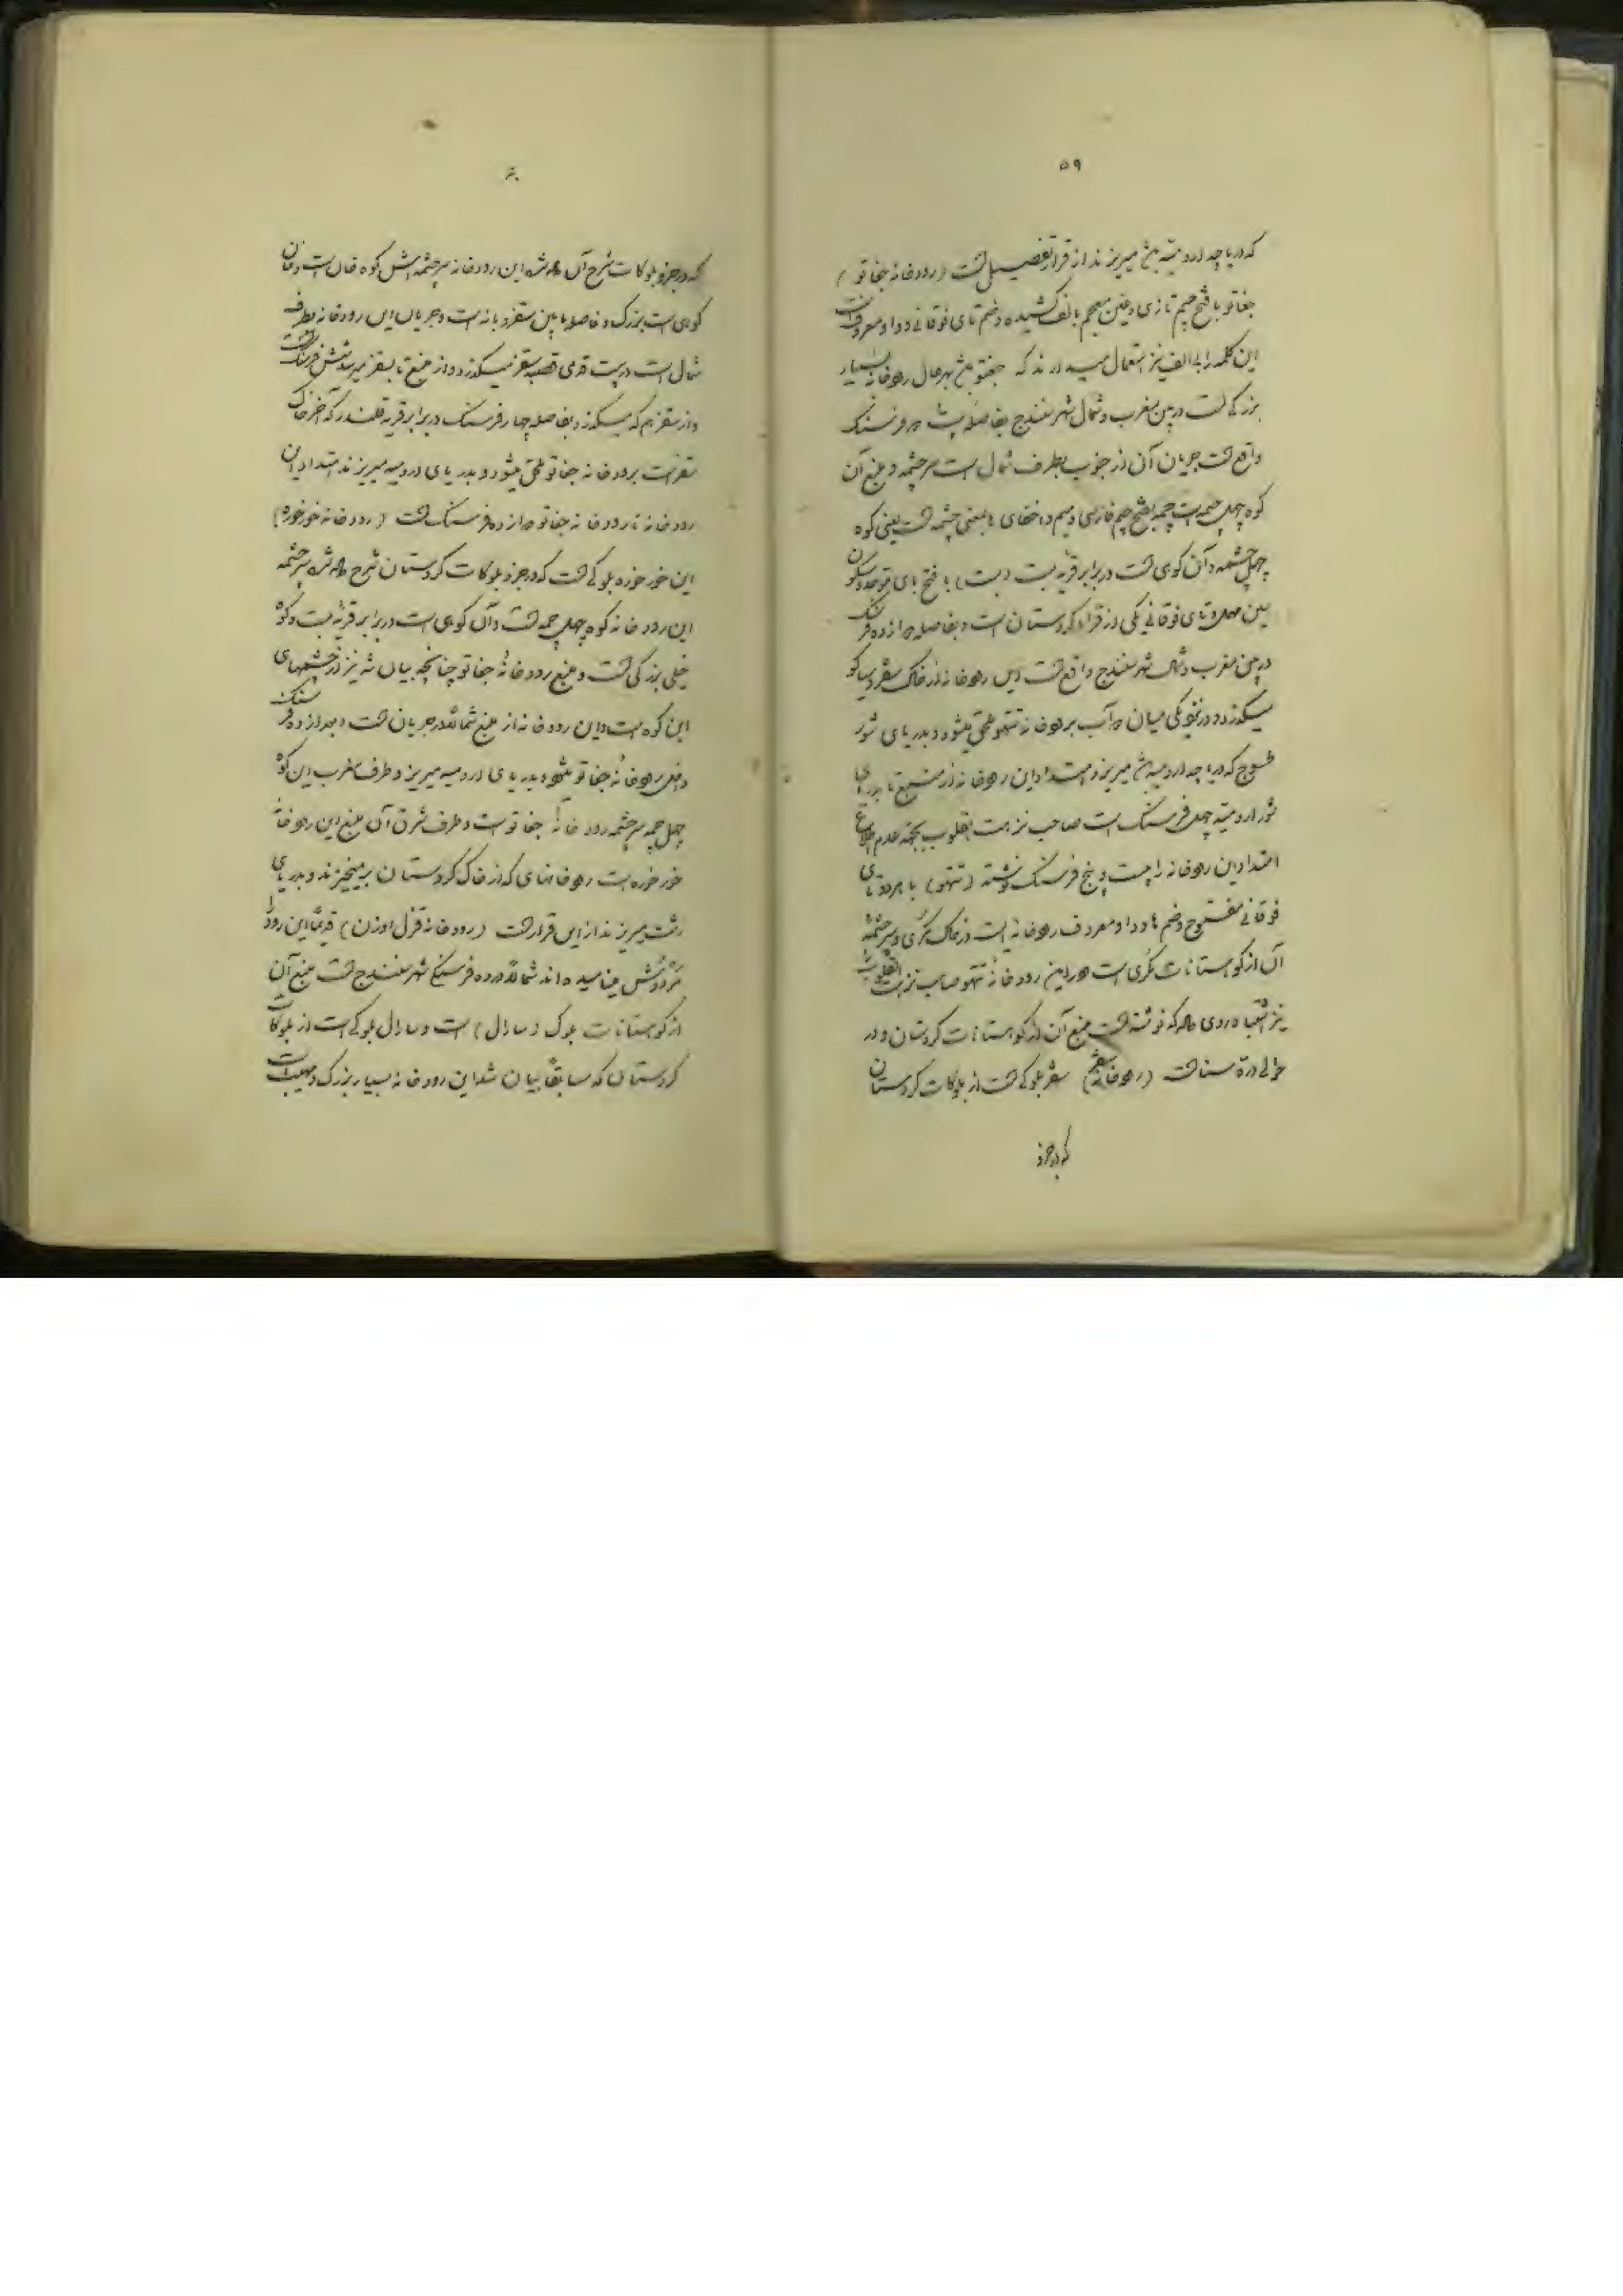 ۵۹
که دریاچه ارومیه باشد میریزند از قرار تفصیل است (رودخانه جغاتو)
جغاتو با فتح جیم تازی و غین معجم بالف کشیده و ضم تای فوقانی و واو معروف است
این کلمه را بی الف نیز استعمال میدارند که جغتو باشد بهرحال رودخانه بسیار
بزرگی است در بین مغرب و شمال شهر سنندج بفاصله فرسنک
واقع است جریان آن از جنوب بطرف شمال است سرچشمه و منبع آن
کوه چهل چمه است چمه بفتح جیم فارسی و میم و اخفای ها بمعنی چشمه است یعنی کوه
چهل چشمه و آن کوهی است در برابر قریه بست (بست) با فتح بای موحده و سکون
سین مهمله و تای فوقانی یکی از قراء کردستان است و بفاصله دوازده فرسنک
در بین مغرب و شمال شهر سنندج واقع است این رودخانه از خاک سقز و سیاکو
میگذرد و در نزدیکی میان دو آب برودخانه تتهو ملحق میشود و بدریای شور
طسوج که دریاچه ارومیه باشد میریزد امتداد این رودخانه از منبع تا بدریای
شور ارومیه چهل فرسنک است صاحب نزهت القلوب بجهة عدم اطلاع
امتداد این رودخانه را بیست و پنج فرسنک نوشته (تتهو) با هر دو تای
فوقانی مفتوح و ضم ها و واو معروف رودخانه ایست در خاک مکری و سرچشمه
آن از کوهستانات مکری است در این رودخانه تتهو صاحب نزهت القلوب را
نیز اشتباه روی داده که نوشته است منبع آن از کوهستانات کردستان و در
حوالی دره سنا است (رودخانه سقز) سقز بلوکی است از بلوکات کردستان
که در جزو
۶۰
که در جزو بلوکات شرح آن داده شده این رودخانه سرچشمه اش کوه خان است و خان
کوهی است بزرک و فاصله مابین سقز و بانه است و جریان این رودخانه بطرف
شمال است در بیست قدمی قصبه سقز میگذرد و از منبع تا بسقز نیز شش فرسنک است
و از سقز هم که میگذرد بفاصله چهار فرسنک در برابر قریه قلندر که آخر خاک
سقز است برودخانه جغاتو ملحق میشود و بدریای ارومیه میریزند امتداد این
رودخانه تا رودخانه جغاتو دوازده فرسنک است (رودخانه خورخوره)
این خورخوره بلوکی است که در جزو بلوکات کردستان شرح داده شده سرچشمه
این رودخانه کوه چهل چمه است و آن کوهی است در برابر قریه بست و کوه
خیلی بزرگی است و منبع رودخانه جغاتو چنانچه بیان شد نیز از چشمهای
این کوه است و این رودخانه از منبع شمالا در جریان است و بعد از ده فرسنک
داخل رودخانه جغاتو میشود و بدریای ارومیه میریزد و طرف مغرب این کوه
چهل چمه سرچشمه رودخانه جغاتو است و طرف شرق آن منبع این رودخانه
خورخوره است رودخانهای که از خاک کردستان برمیخیزند و بدریای
رشت میریزند از این قرار است (رودخانه قزل اوزن) قدیماً این رود را
مینامیده اند شمالا در ده فرسنکی شهر سنندج است منبع آن
از کوهستانات بلوک (سارال) است و سارال بلوکی است از بلوکات
کردستان که سابقاً بیان شد این رودخانه بسیار بزرک و مهیب است